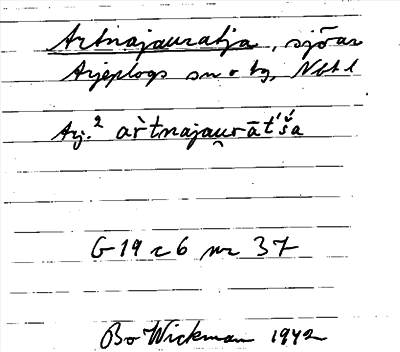 Artnajauratja, sjöar
Arjeplogs sn o tg, Nbtl
Arj.² ar̀tnajau̯rāt́š́a
G 19 c 6 nr 37
Bo Wickman 1942